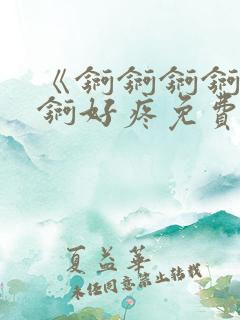 《锕锕锕锕
锕好疼免費
夏益華
未任同意禁止转载